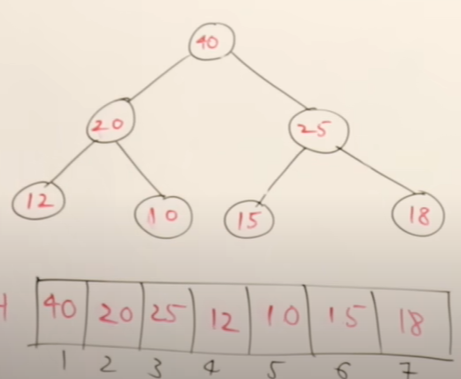 40
20 25
12 10 15 18
H 40 20 25 12 10 15 18
1 2 3 4 5 6 7